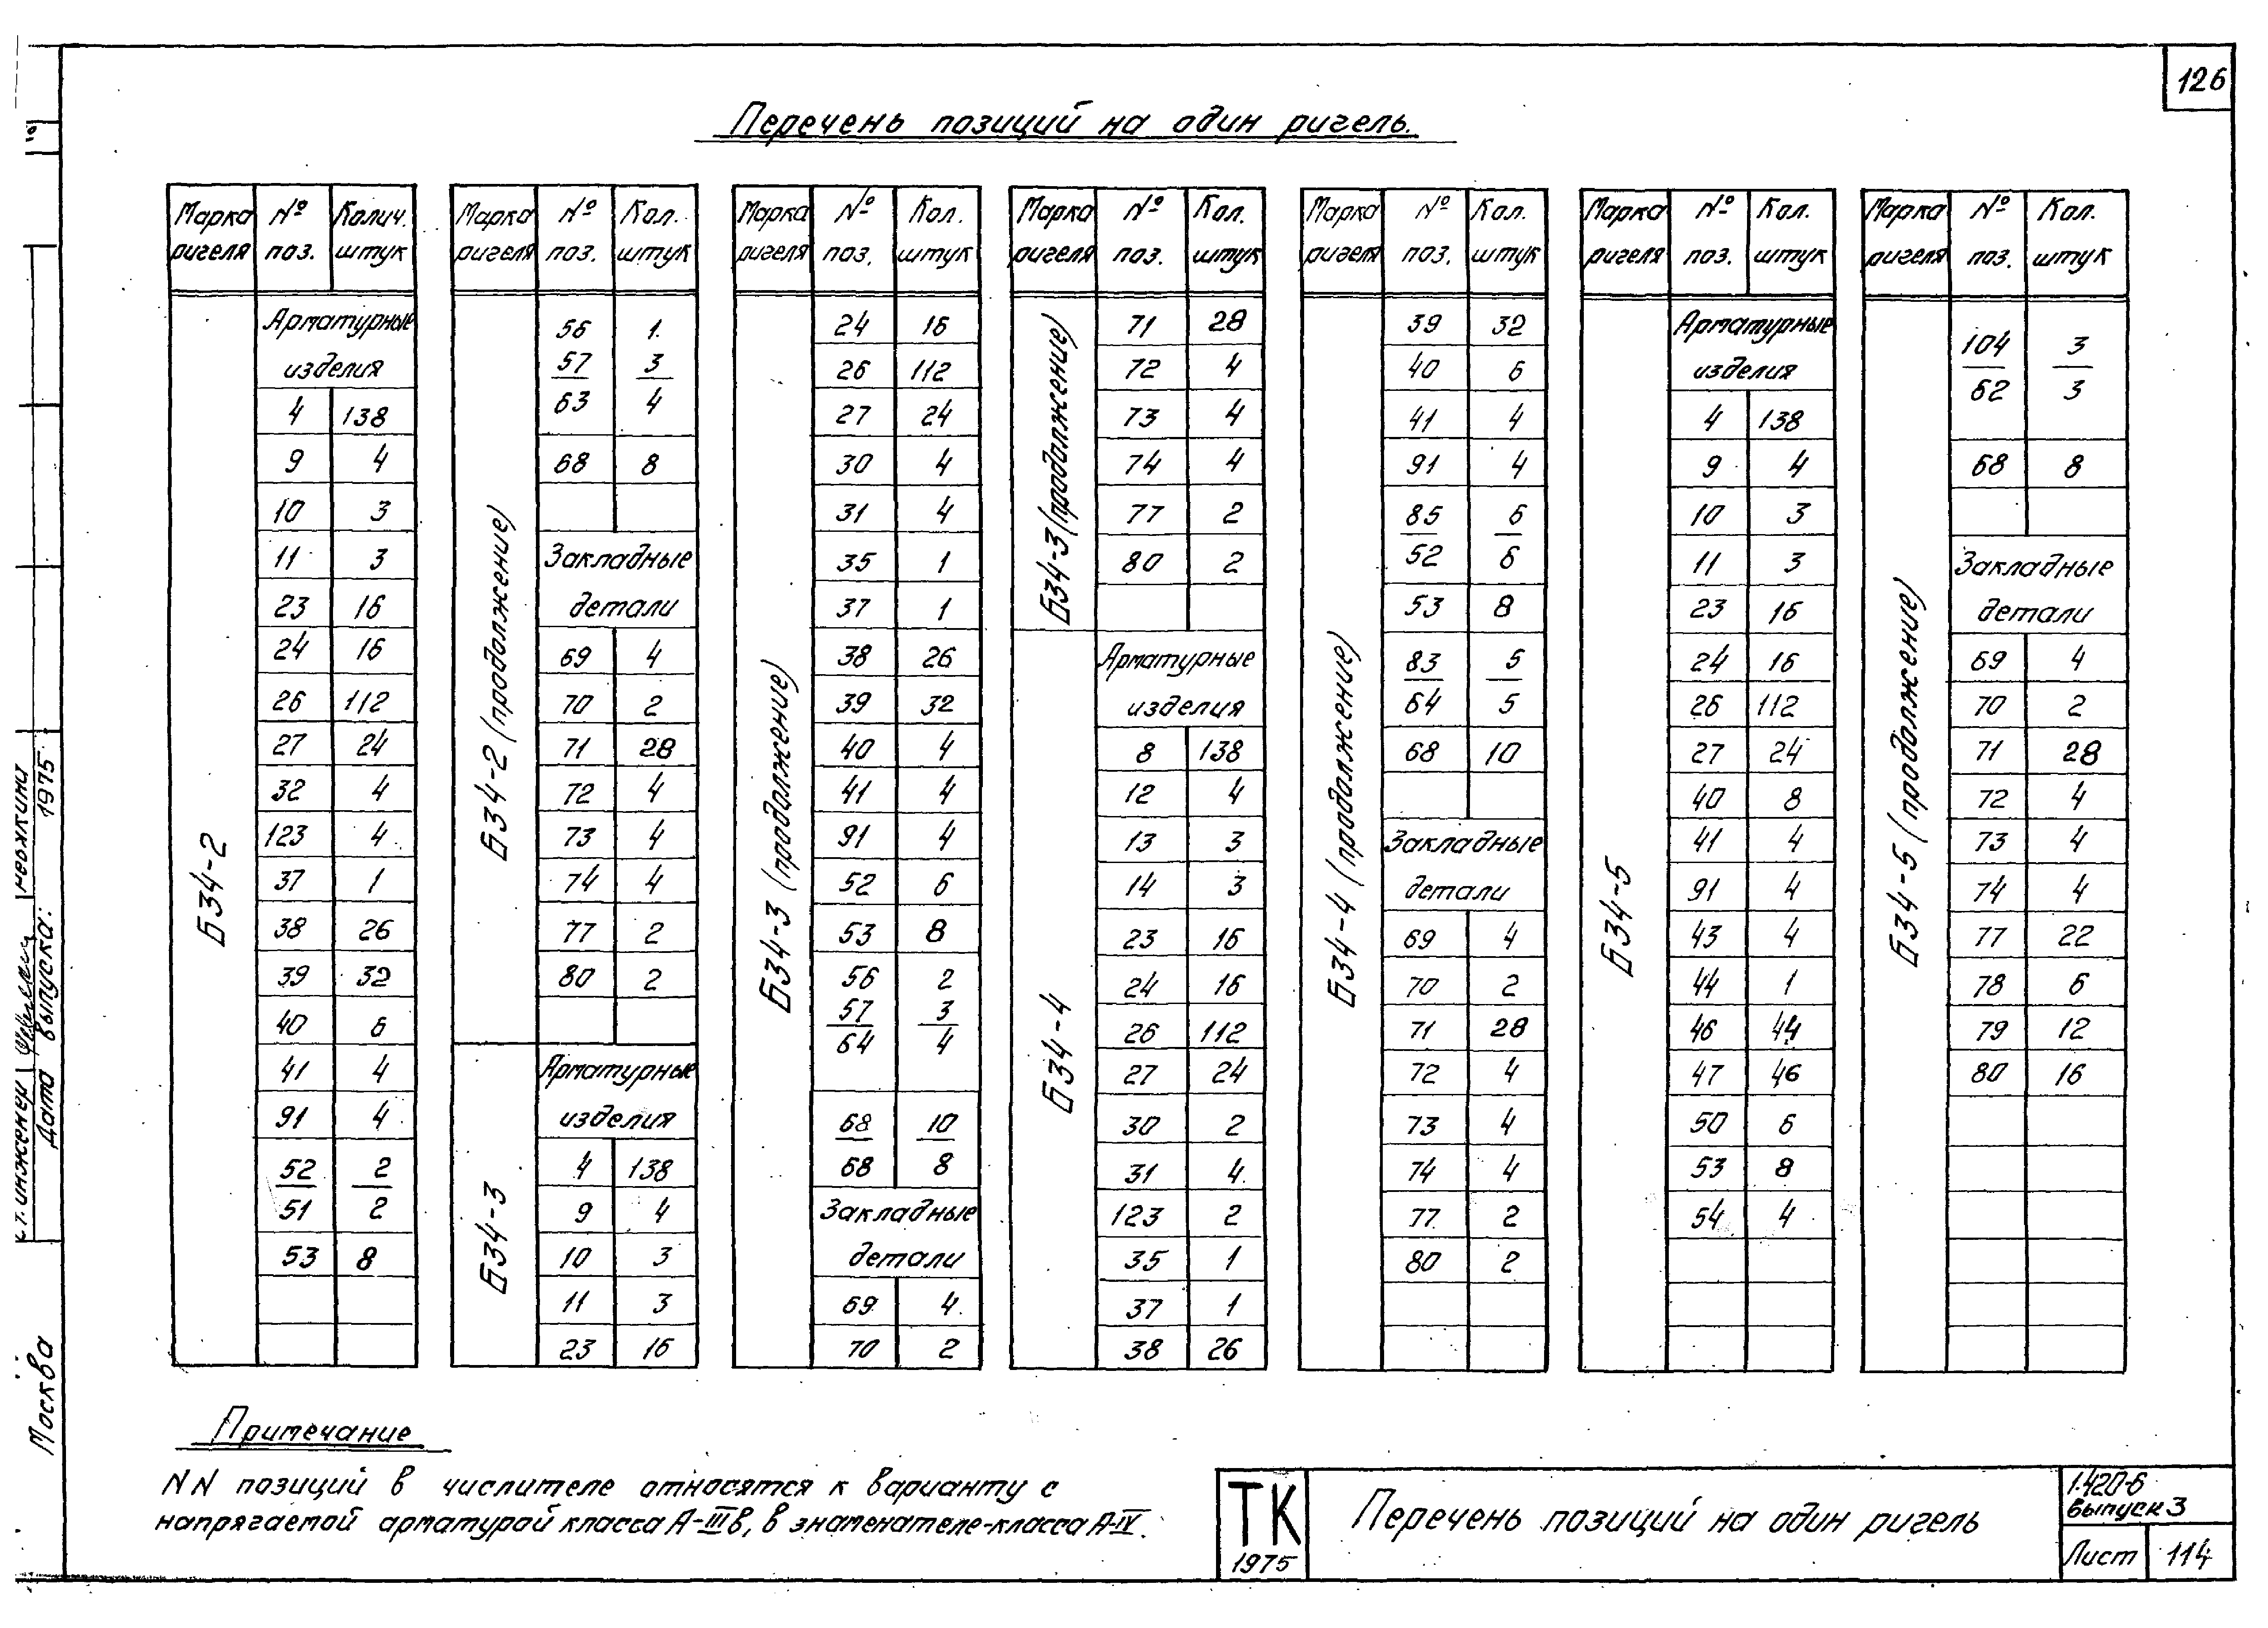 126
Перечень позиций на один ригель.
Марка ригеля № поз. Колич. штук
Б34-2
Арматурные
изделия
4 138
9 4
10 3
11 3
23 16
24 16
26 112
27 24
32 4
123 4
37 1
38 26
39 32
40 6
41 4
91 4
52 2
51 2
53 8
Марка ригеля № поз. Кол. штук
Б34-2 (продолжение)
56 1
57 3
63 4
68 8
Закладные
детали
69 4
70 2
71 28
72 4
73 4
74 4
77 2
80 2
Б34-3
Арматурные
изделия
4 138
9 4
10 3
11 3
23 16
Марка ригеля № поз. Кол. штук
Б34-3 (продолжение)
24 16
26 112
27 24
30 4
31 4
35 1
37 1
38 26
39 32
40 4
41 4
91 4
52 6
53 8
56 2
57 3
64 4
68 10
68 8
Закладные
детали
69 4
70 2
Марка ригеля № поз. Кол. штук
Б34-3 (продолжение)
71 28
72 4
73 4
74 4
77 2
80 2
Б34-4
Арматурные
изделия
8 138
12 4
13 3
14 3
23 16
24 16
26 112
27 24
30 2
31 4
123 2
35 1
37 1
38 26
Марка ригеля № поз. Кол. штук
Б34-4 (продолжение)
39 32
40 6
41 4
91 4
85 6
52 6
53 8
83 5
64 5
68 10
Закладные
детали
69 4
70 2
71 28
72 4
73 4
74 4
77 2
80 2
Марка ригеля № поз. Кол. штук
Б34-5
Арматурные
изделия
4 138
9 4
10 3
11 3
23 16
24 16
26 112
27 24
40 8
41 4
91 4
43 4
44 1
46 44
47 46
50 6
53 8
54 4
Марка ригеля № поз. Кол. штук
Б34-5 (продолжение)
104 3
62 3
68 8
Закладные
детали
69 4
70 2
71 28
72 4
73 4
74 4
77 22
78 6
79 12
80 16
Примечание
NN позиций в числителе относятся к варианту с
напрягаемой арматурой класса А-IIIв, в знаменателе-класса А-IV.
ТК
1975
Перечень позиций на один ригель
1.420-6
выпуск 3
Лист 114
ст. инженер
Дата выпуска: 1975
Москва